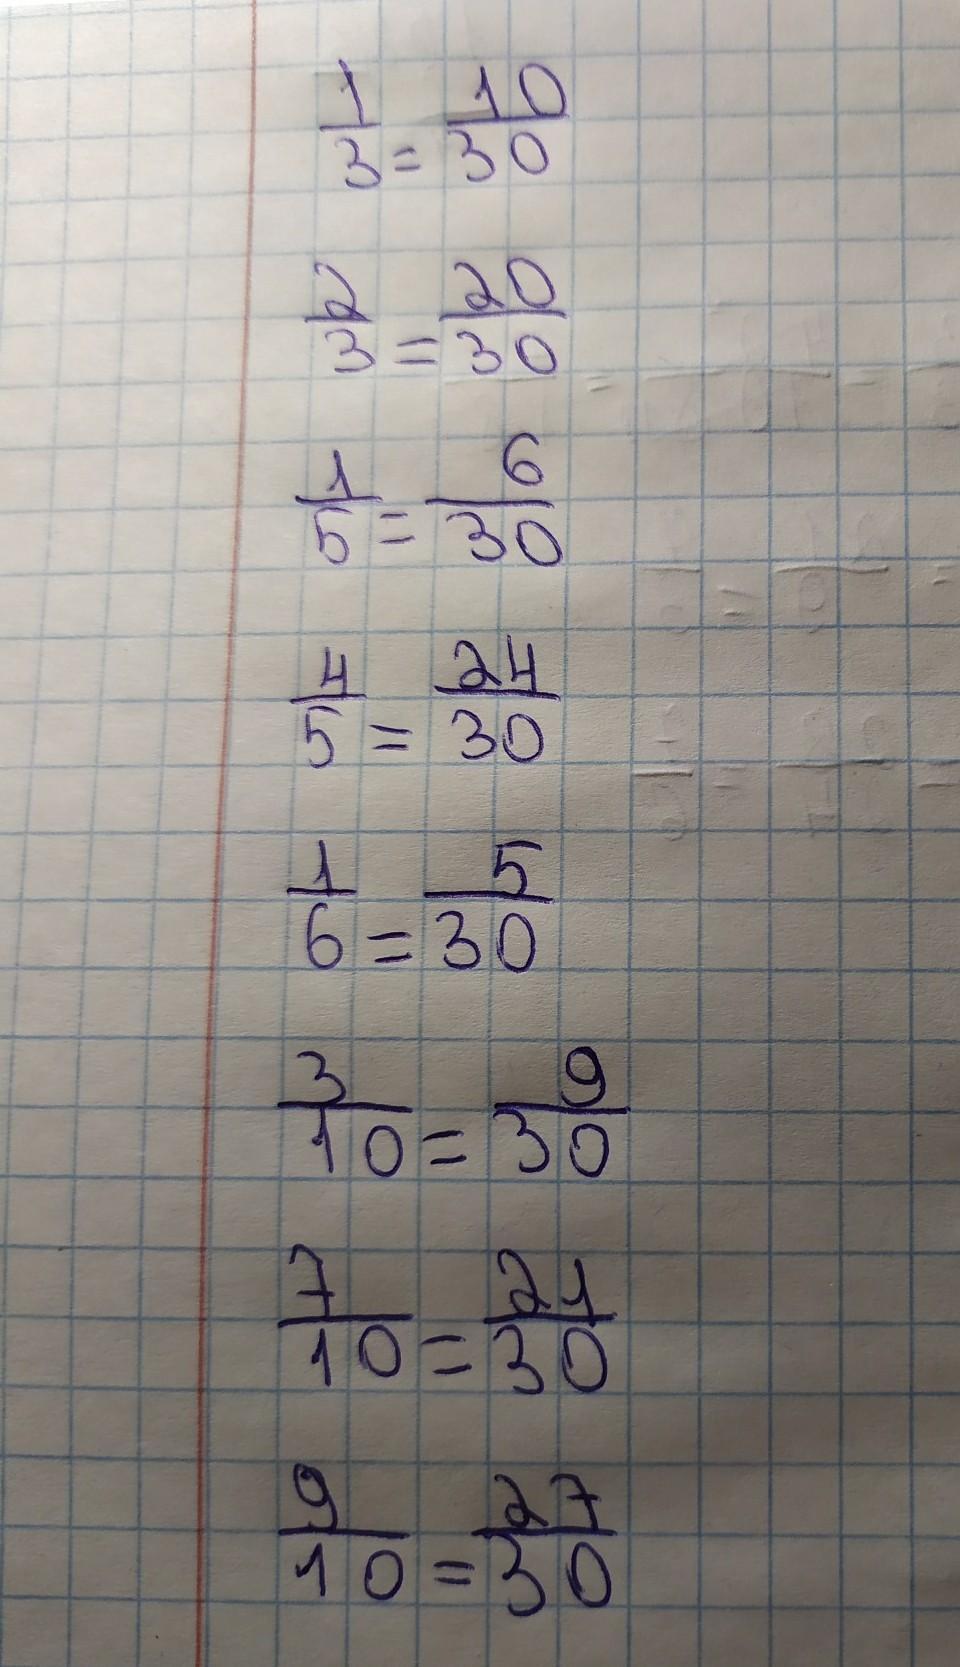 1/3 = 10/30
2/3 = 20/30
1/5 = 6/30
4/5 = 24/30
1/6 = 5/30
3/10 = 9/30
7/10 = 21/30
9/10 = 27/30